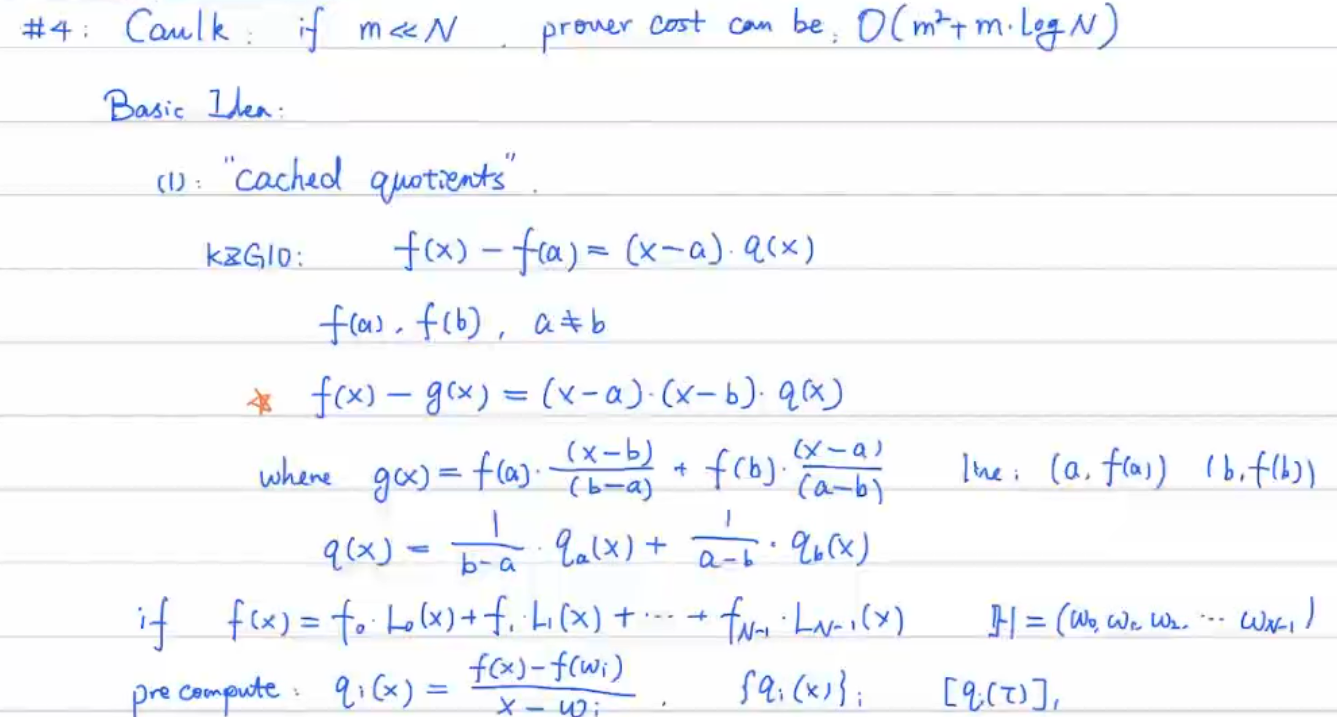 #4: Caulk: if m ≪ N. prover cost can be: O(m² + m·log N)
Basic Idea:
(1): "cached quotients".
KZG10: f(x) − f(a) = (x−a)·q(x)
f(a), f(b), a ≠ b
* f(x) − g(x) = (x−a)·(x−b)·q(x)
where g(x) = f(a)·(x−b)/(b−a) + f(b)·(x−a)/(a−b) line: (a, f(a)) (b, f(b))
q(x) = 1/(b−a)·qₐ(x) + 1/(a−b)·q_b(x)
if f(x) = f₀·L₀(x) + f₁·L₁(x) + ··· + f_{N−1}·L_{N−1}(x) ℍ = (ω₀, ω₁, ω₂, ··· ω_{N−1})
precompute: qᵢ(x) = (f(x) − f(ωᵢ))/(x − ωᵢ). {qᵢ(x)}ᵢ [qᵢ(τ)]₁